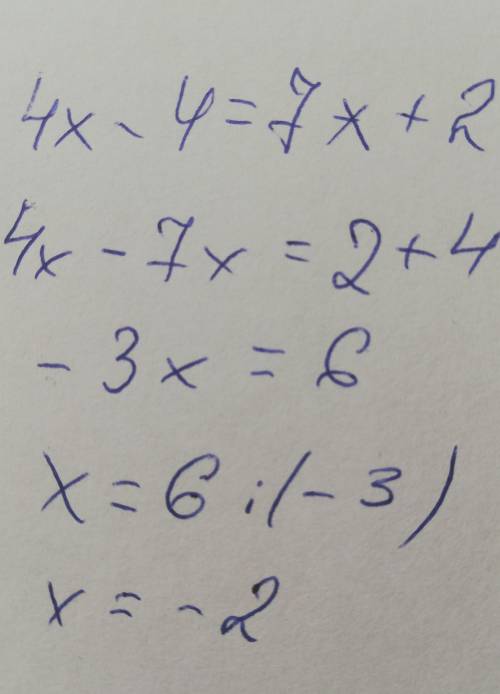 4x - 4 = 7x + 2
4x - 7x = 2 + 4
- 3x = 6
x = 6 : (- 3)
x = - 2